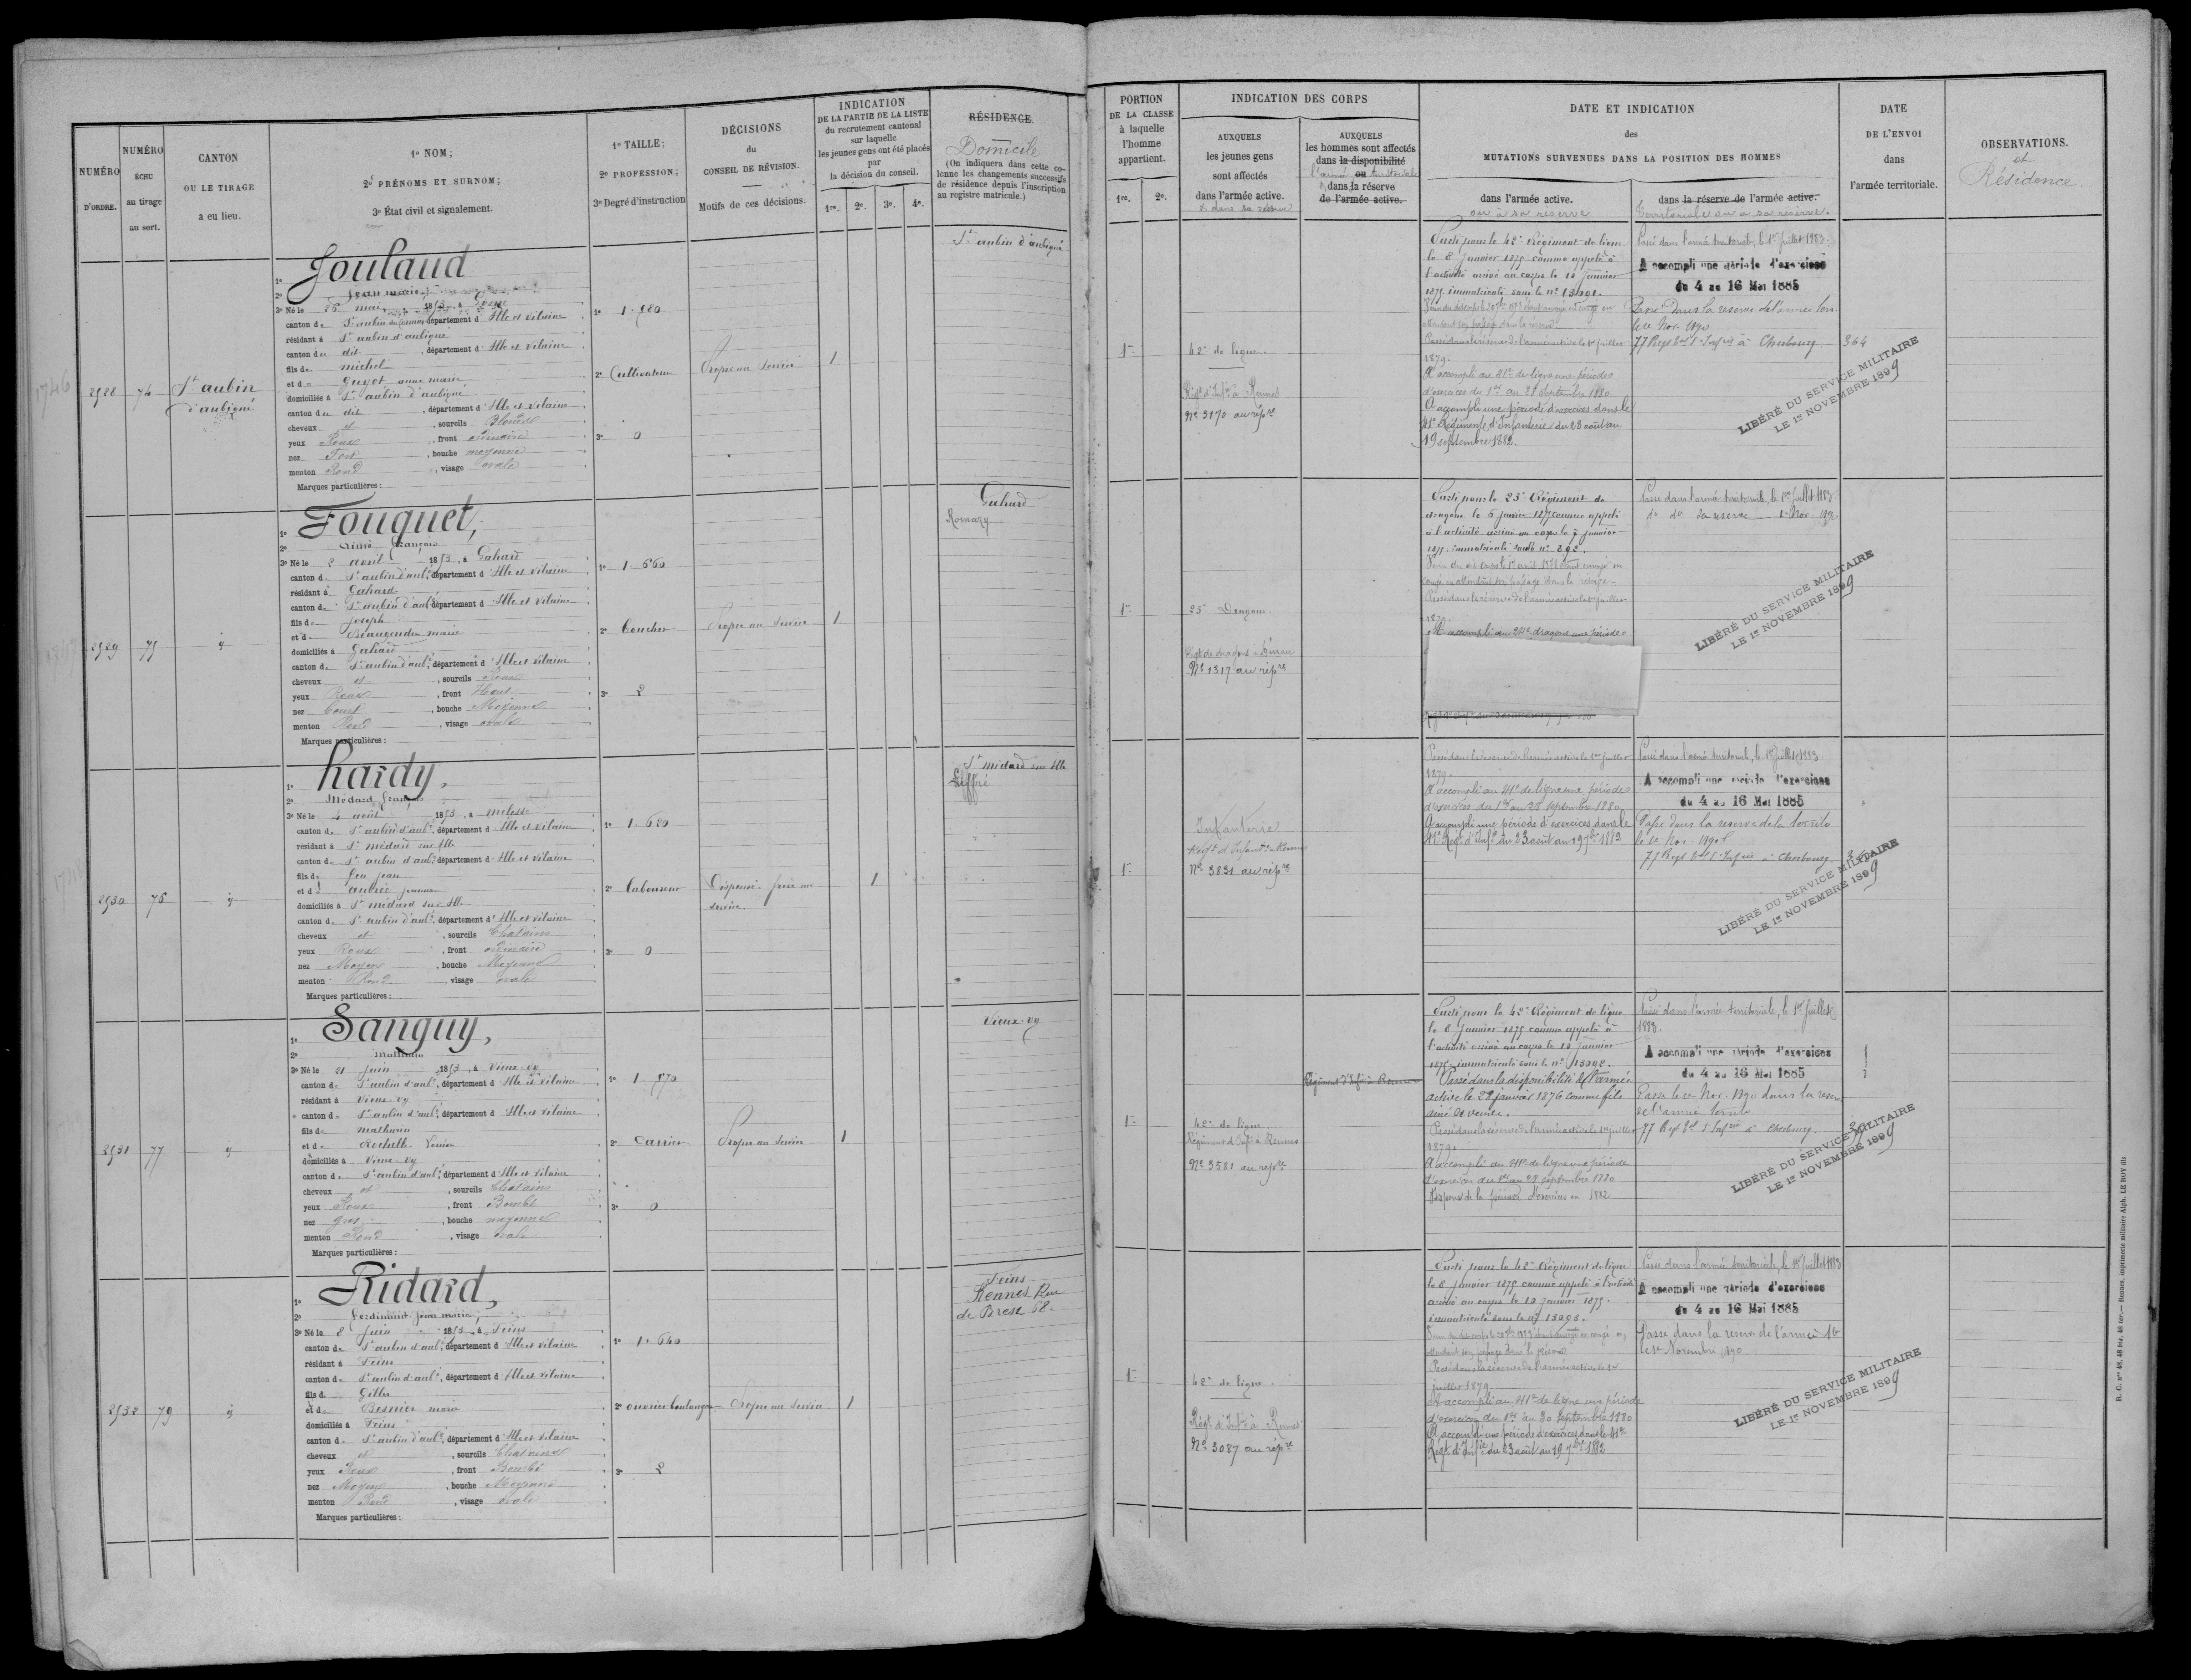 NUMÉRO
D'ORDRE.
NUMÉRO
ÉCHU
au tirage
au sort.
CANTON
OU LE TIRAGE
a eu lieu.
1º NOM;
2º PRÉNOMS ET SURNOM;
3º État civil et signalement.
1º TAILLE;
2º PROFESSION;
3º Degré d'instruction
DÉCISIONS
du
CONSEIL DE RÉVISION.
Motifs de ces décisions.
INDICATION
DE LA PARTIE DE LA LISTE
du recrutement cantonal
sur laquelle
les jeunes gens ont été placés
par
la décision du conseil.
1re. 2e. 3e. 4e.
RÉSIDENCE.
Domicile
(On indiquera dans cette co-
lonne les changements successifs
de résidence depuis l'inscription
au registre matricule.)
1746
2928
74
St aubin
d'aubigné
1º Joulaud
2º Jean marie
3º Né le 26 mai 1853, à
canton de St aubin du Cormier département d'Ille et Vilaine
résidant à St aubin d'aubigné
canton du dit, département d'Ille et Vilaine
fils de michel
et de Guyot anne marie
domiciliés à St aubin d'aubigné
canton du dit, département d'Ille et Vilaine
cheveux et, sourcils Blonds
yeux Roux, front ordinaire
nez Fort, bouche moyenne
menton Rond, visage ovale
Marques particulières:
1º 1.680
2º Cultivateur
3º 0
Propre au service
1
St aubin d'aubigné
2929
75
id
1º Fouquet,
2º Aimé François
3º Né le 2 avril 1853, à Gahard
canton de St aubin d'aubé, département d'Ille et Vilaine
résidant à Gahard
canton de St aubin d'aubé, département d'Ille et Vilaine
fils de Joseph
et de Beaugendre marie
domiciliés à Gahard
canton de St aubin d'aubé, département d'Ille et Vilaine
cheveux et, sourcils Roux
yeux Roux, front Haut
nez Court, bouche Moyenne
menton Rond, visage ovale
Marques particulières:
1º 1.660
2º Boucher
3º 2
Propre au service
1
Gahard
Romazy
2930
76
id
1º hardy,
2º Médard François
3º Né le 4 août 1853, à melesse
canton de St aubin d'aubé, département d'Ille et Vilaine
résidant à St médard sur Ille
canton de St aubin d'aubé, département d'Ille et Vilaine
fils de feu jean
et de aubrée jeanne
domiciliés à St médard sur Ille
canton de St aubin d'aubé, département d'Ille et Vilaine
cheveux et, sourcils Chatains
yeux Roux, front ordinaire
nez Moyen, bouche Moyenne
menton Rond, visage ovale
Marques particulières:
1º 1.620
2º Laboureur
3º 0
Dispensé. frère au
service.
1
St médard sur Ille
Liffré
2931
77
id
1º Sanguy,
2º Mathurin
3º Né le 21 juin 1853, à Vieux-vy
canton de St aubin d'aubé, département d'Ille et Vilaine
résidant à Vieux-vy
canton de St aubin d'aubé, département d'Ille et Vilaine
fils de mathurin
et de Rochelle
domiciliés à Vieux-vy
canton de St aubin d'aubé, département d'Ille et Vilaine
cheveux et, sourcils Chatains
yeux Roux, front Bombé
nez gros, bouche moyenne
menton Rond, visage ovale
Marques particulières:
1º 1.570
2º Carrier
3º 0
Propre au service
1
Vieux-vy
2932
79
id
1º Ridard,
2º Ferdinand jean marie,
3º Né le 8 juin 1853, à Feins
canton de St aubin d'aubé, département d'Ille et Vilaine
résidant à Feins
canton de St aubin d'aubé, département d'Ille et Vilaine
fils de Gilles
et de Besnier marie
domiciliés à Feins
canton de St aubin d'aubé, département d'Ille et Vilaine
cheveux et, sourcils Chatains
yeux Roux, front Bombé
nez Moyen, bouche Moyenne
menton Rond, visage ovale
Marques particulières:
1º 1.640
2º ouvrier boulanger
3º 2
Propre au service
1
Feins
Rennes Rue
de Brest 68.
PORTION
DE LA CLASSE
à laquelle
l'homme
appartient.
1re. 2e.
INDICATION DES CORPS
AUXQUELS
les jeunes gens
sont affectés
dans l'armée active.
et dans sa réserve
AUXQUELS
les hommes sont affectés
dans la disponibilité
l'armée ou territoriale
dans la réserve
de l'armée active.
DATE ET INDICATION
des
MUTATIONS SURVENUES DANS LA POSITION DES HOMMES
dans l'armée active.
ou à sa réserve
dans la réserve de l'armée active.
Territoriale ou à sa réserve.
DATE
DE L'ENVOI
dans
l'armée territoriale.
OBSERVATIONS.
et
Résidence.
1re
42e de ligne.
Régt d'Infie à Rennes
Nº 3170 au répre
Parti pour le 42e Régiment de ligne
le 8 janvier 1875 comme appelé à
l'activité arrivé au corps le 10 janvier
1875 immatriculé sous le nº 13091.
Passé dans la réserve de l'armée active le 1er juillet
1879.
A accompli au 41e de ligne une période
d'exercices du 1er au 28 septembre 1880
A accompli une période d'exercices dans le
41e Régiment d'Infanterie du 23 août au
19 septembre 1882.
Passé dans l'armée territoriale, le 1er juillet 1883.
A accompli une période d'exercices
du 4 au 16 Mai 1885
Passé Dans la reserve de l'armée terr.
le 1e Nov. 1890
77 Regt d'Infrie à Cherbourg
364
LIBÉRÉ DU SERVICE MILITAIRE
LE 1er NOVEMBRE 1899
1re
23e Dragons.
Régt de dragons à Dinan
Nº 1317 au répre
Parti pour le 23e Régiment de
dragons le 6 janvier 1875 comme appelé
à l'activité arrivé au corps le 7 janvier
1875 immatriculé sous le nº 892.
congé en attendant son passage dans la réserve
Passé dans la réserve de l'armée active le 1er juillet
1879.
A accompli au 24e dragons une période
Passé dans l'armée territoriale, le 1er juillet 1883.
do do la reserve 1e Nov 1892
LIBÉRÉ DU SERVICE MILITAIRE
LE 1er NOVEMBRE 1899
1re
Infanterie
Régt d'Infantie à Rennes
Nº 3831 au répre
Passé dans la réserve de l'armée active le 1er juillet
1879.
A accompli au 41e de ligne une période
d'exercices du 1er au 28 septembre 1880
A accompli une période d'exercices dans le
41e Régt d'Infie du 23 août au 19 7bre 1882
Passé dans l'armée territoriale, le 1er juillet 1883
A accompli une période d'exercices
du 4 au 16 Mai 1885
Passé dans la reserve de la territle
le 1e Nov 1890
77 Regt d'Infrie à Cherbourg
LIBÉRÉ DU SERVICE MILITAIRE
LE 1er NOVEMBRE 1899
1re
42e de ligne
Régiment d'Infie à Rennes
Nº 3581 au répre
Régiment d'Infie à Rennes
Parti pour le 42e Régiment de ligne
le 8 janvier 1875 comme appelé à
l'activité arrivé au corps le 10 janvier
1875 immatriculé sous le nº 13092.
Passé dans la disponibilité de l'armée
active le 22 janvier 1876 comme fils
ainé de veuve.
Passé dans la réserve de l'armée active le 1er juillet
1879.
A accompli au 41e de ligne une période
d'exercices du 1er au 28 septembre 1880
Dispensé de la période d'exercices en 1882
Passé dans l'armée territoriale, le 1er juillet
1883
A accompli une période d'exercices
du 4 au 16 Mai 1885
Passé le 1e Nov. 1890 dans la reserve
de l'armée territle
77 Regt d'Infrie à Cherbourg.
LIBÉRÉ DU SERVICE MILITAIRE
LE 1er NOVEMBRE 1899
1re
42e de ligne.
Régt d'Infie à Rennes
Nº 3087 au répre
Parti pour le 42e Régiment de ligne
le 8 janvier 1875 comme appelé à l'activité
arrivé au corps le 10 janvier 1875.
immatriculé sous le nº 13093.
Passé dans la réserve de l'armée active le 1er
juillet 1879.
A accompli au 41e de ligne une période
d'exercices du 1er au 30 septembre 1880
A accompli une période d'exercices dans le 41e
Régt d'Infie du 23 août au 19 7bre 1882
Passé dans l'armée territoriale, le 1er juillet 1883
A accompli une période d'exercices
du 4 au 16 Mai 1885
Passé dans la reserve de l'armée te
le 1e Novembre 1890
LIBÉRÉ DU SERVICE MILITAIRE
LE 1er NOVEMBRE 1899
R. C. nos 48, 48 bis, 48 ter.— Rennes, imprimerie militaire Alph. LE ROY fils